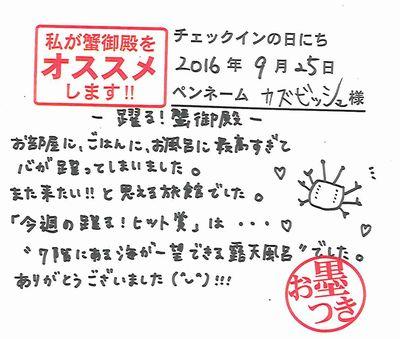 私が蟹御殿を
オススメ
します!!
チェックインの日にち
2016年9月25日
ペンネーム カズゼッシュ様
- 躍る!蟹御殿 -
お部屋に、ごはんに、お風呂に最高すぎて
心が躍ってしまいました。
また来たい!!と思える旅館でした。
「今週の躍る!ヒット賞」は・・・♡
"7階にある海が一望できる露天風呂"でした。
ありがとうございました(^◡^)!!!
お墨つき